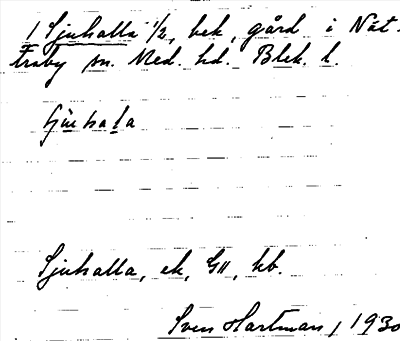 1 Sjuhalla 1/2, bek, gård i Nät-
traby sn. Med. hd. Blek. l.
Sjuhalla, ek, GII, kb.
Sven Hartman, 1930